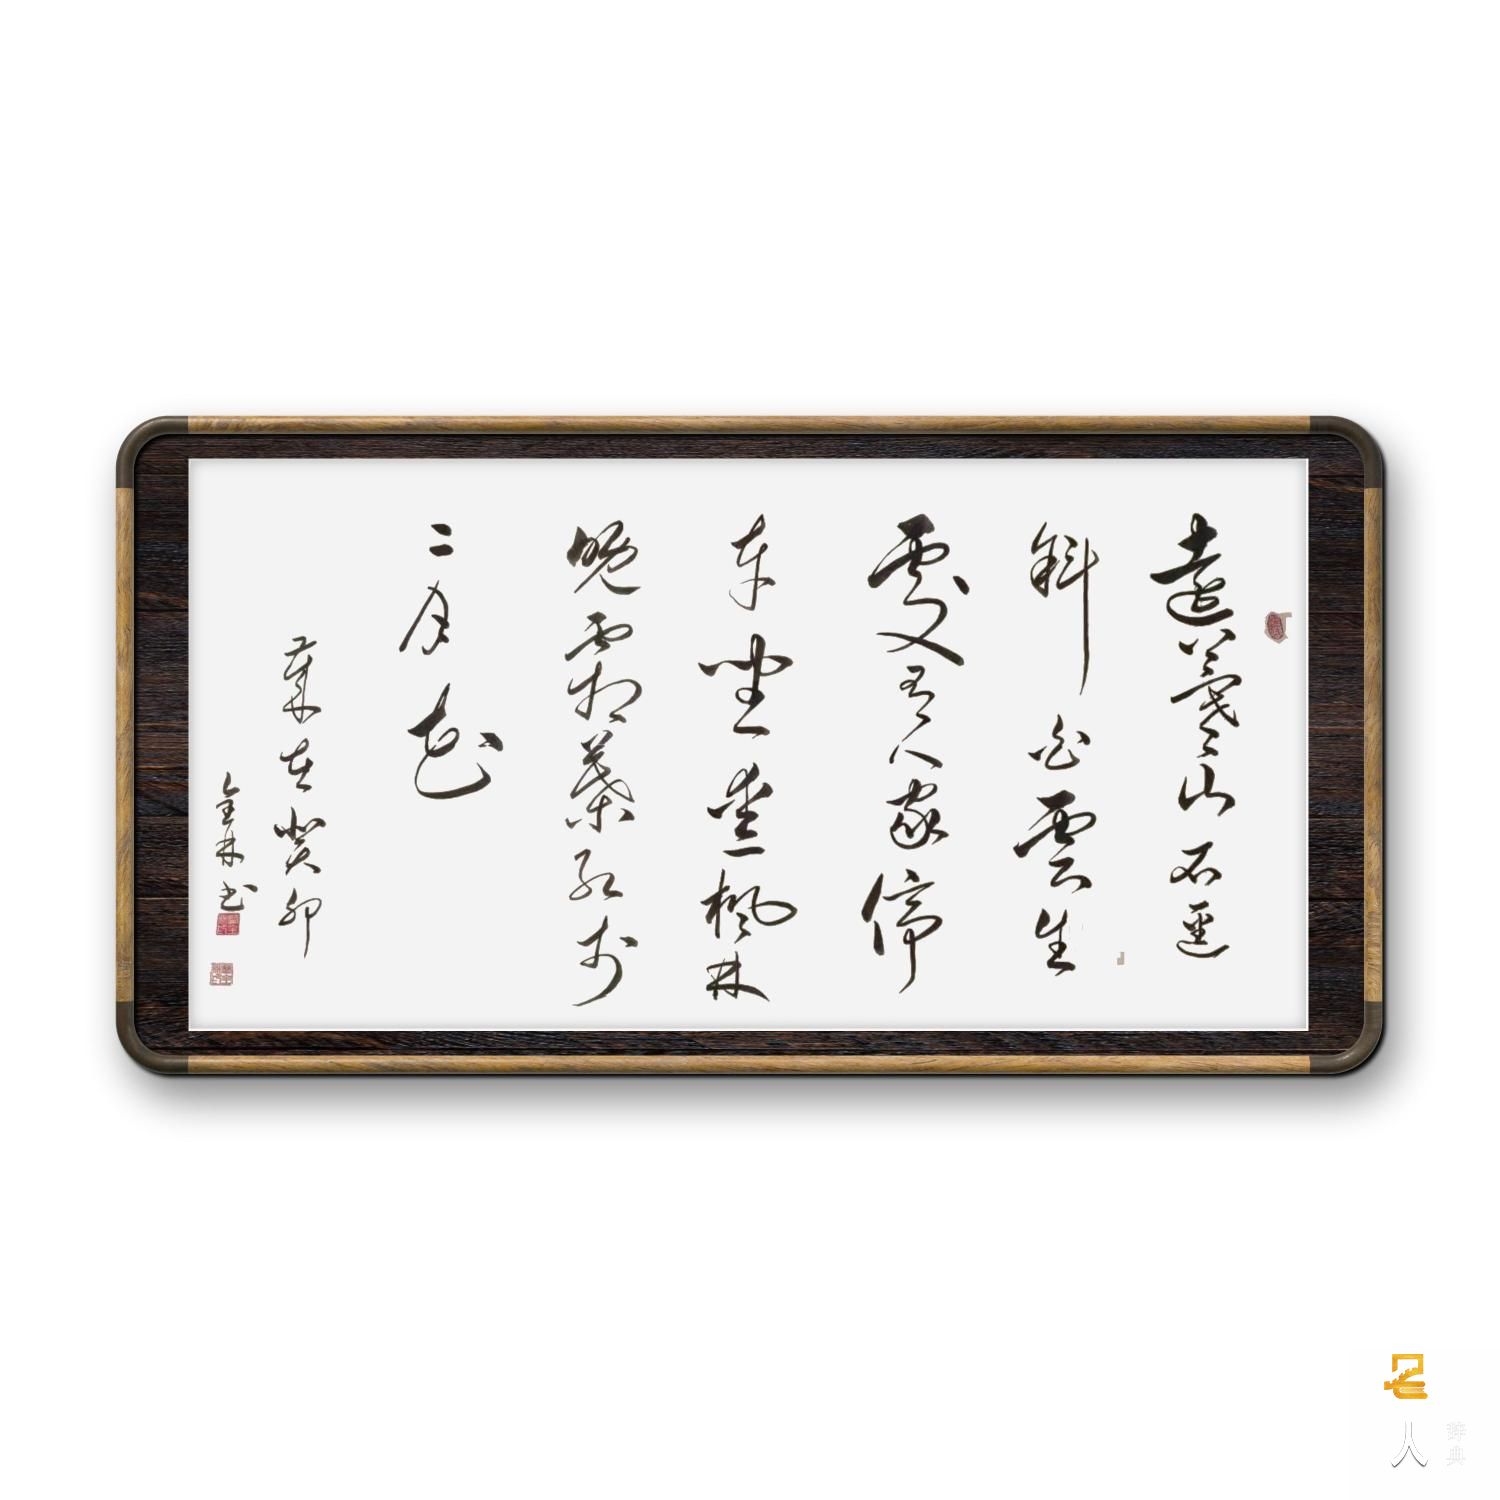 遠上寒山石逕
斜白雲生
處有人家停
車坐愛楓林
晚霜葉紅於
二月花
歲在癸卯
金林书
名人辞典